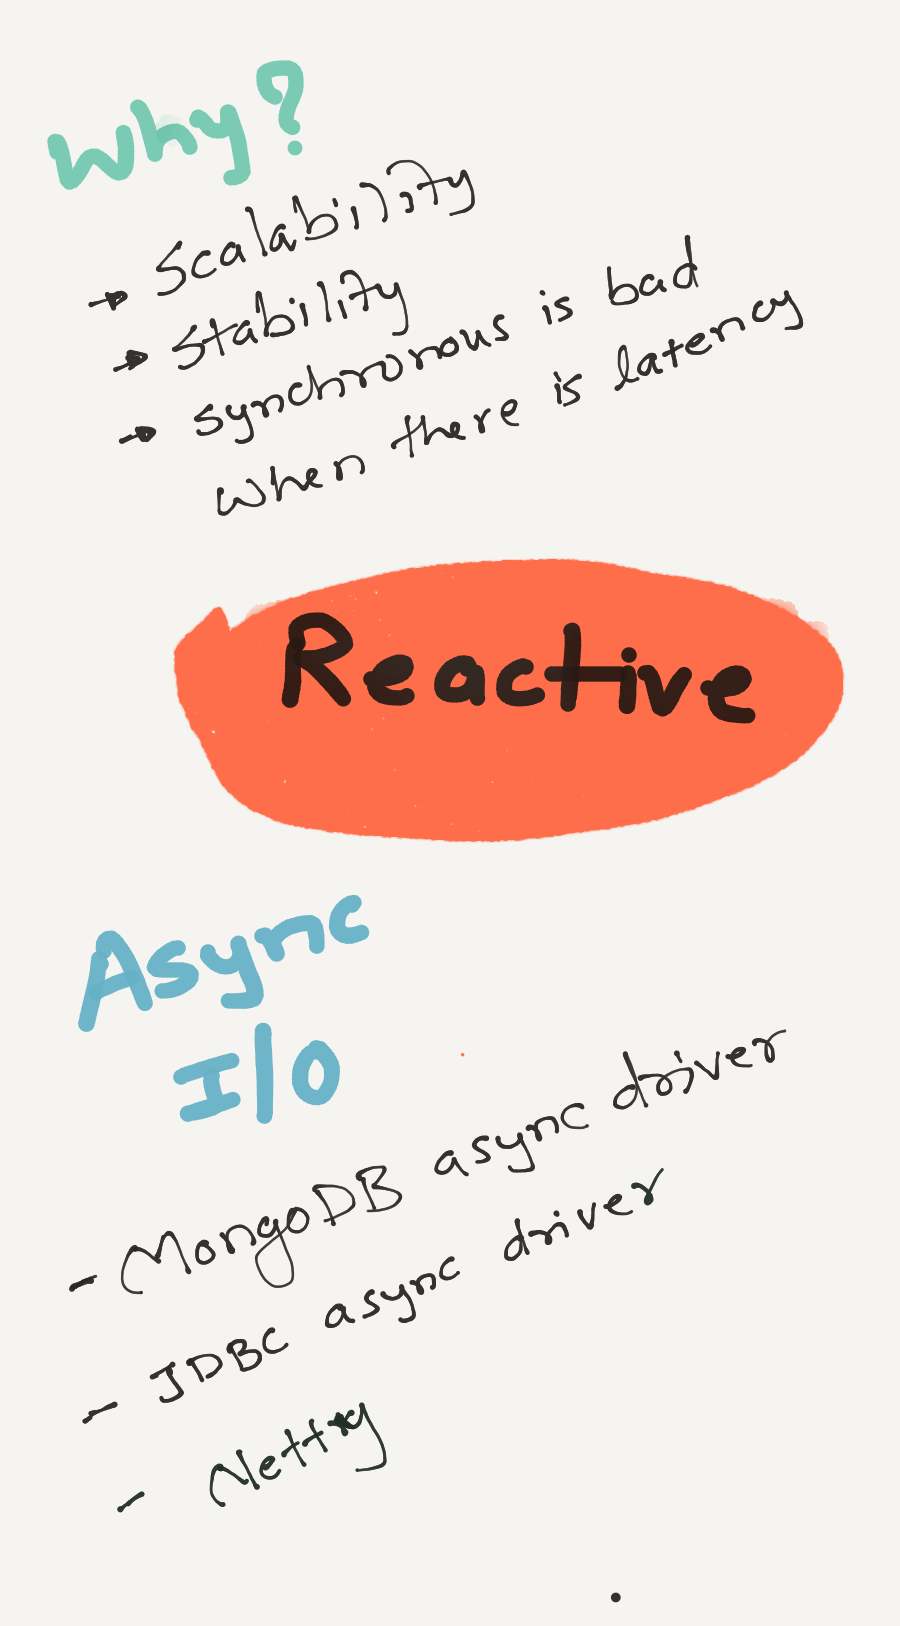 Why?
→ Scalability
→ Stability
→ synchronous is bad
when there is latency
Reactive
Async
I/O
- MongoDB async driver
- JDBC async driver
- Netty